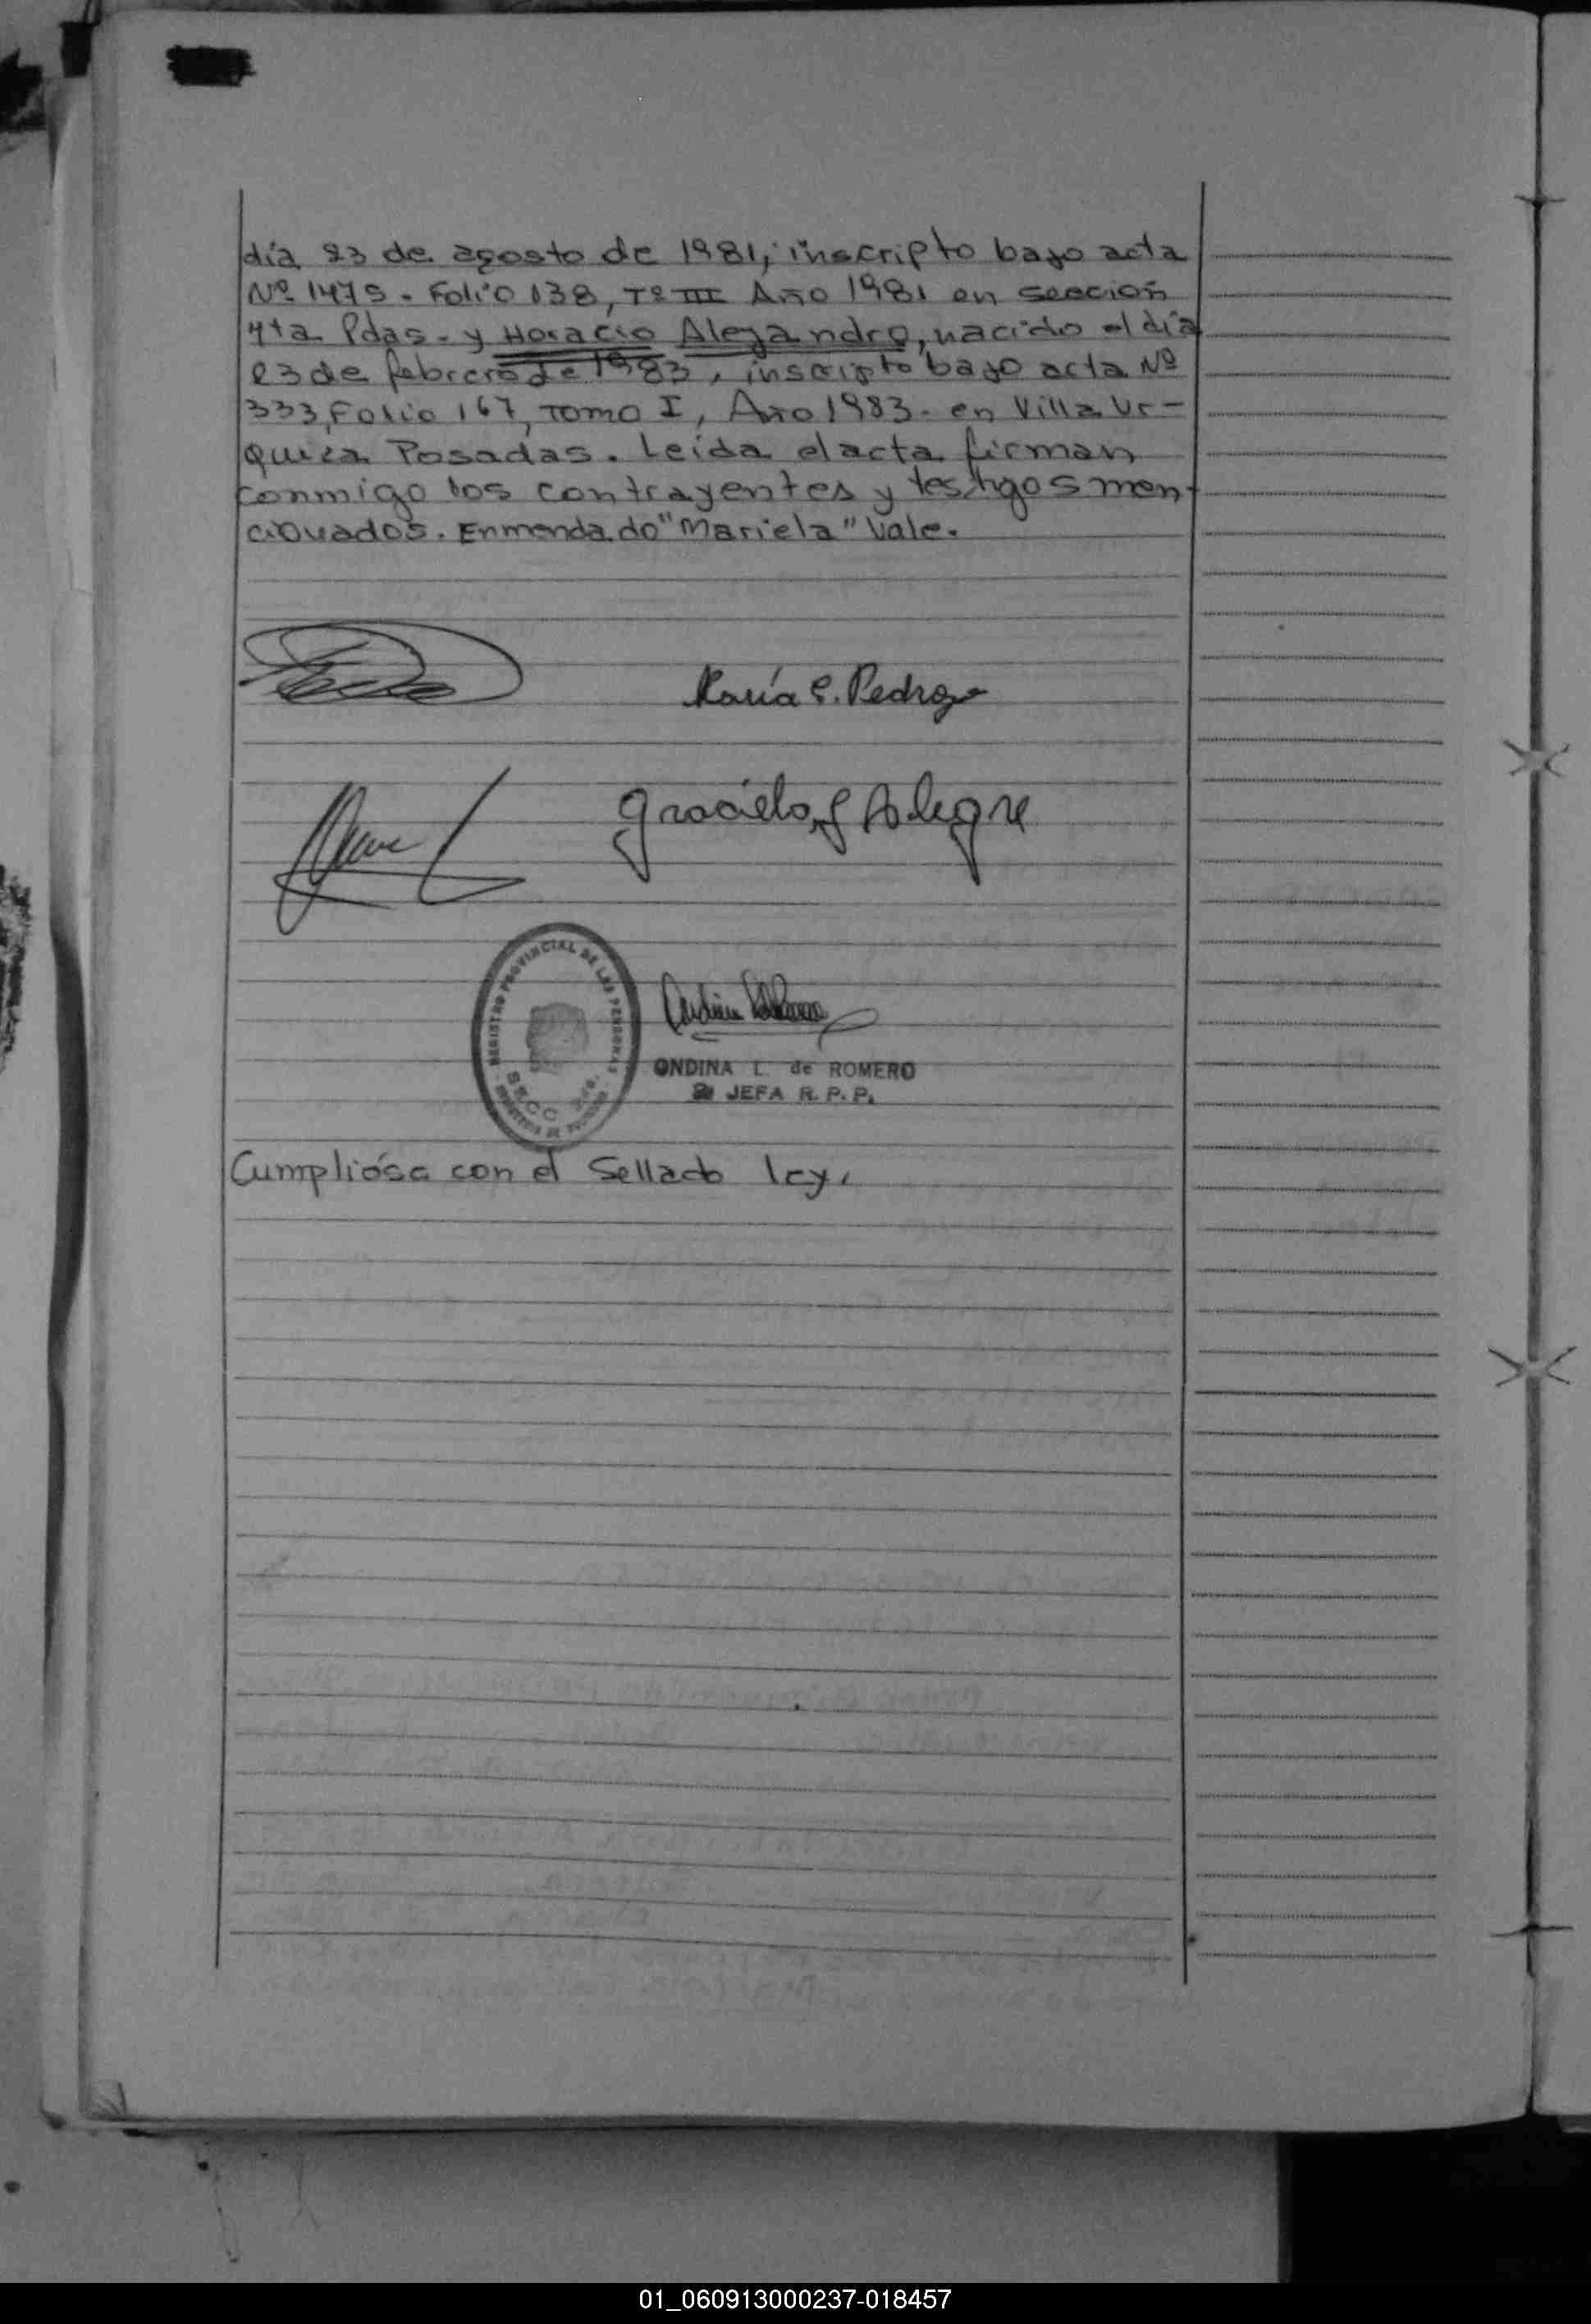 día 23 de agosto de 1981, inscripto bajo acta
Nº 1475. Folio 138, Tº III Año 1981 en sección
4ta Pdas. y Horacio Alejandro, nacido el día
23 de febrero de 1983, inscripto bajo acta Nº
333, Folio 167, Tomo I, Año 1983. en Villa Ur-
quiza Posadas. Leída el acta firman
conmigo los contrayentes y testigos men-
cionados. Enmendado "Mariela" Vale.
María E. Pedrozo
Graciela Alegre
REGISTRO PROVINCIAL DE LAS PERSONAS
SECC.
ONDINA L. de ROMERO
JEFA R. P. P.
Cumplióse con el Sellado ley.
01_060913000237-018457